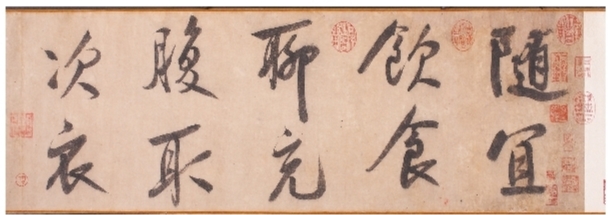 隨宜
飲食
聊充
腹取
次衣